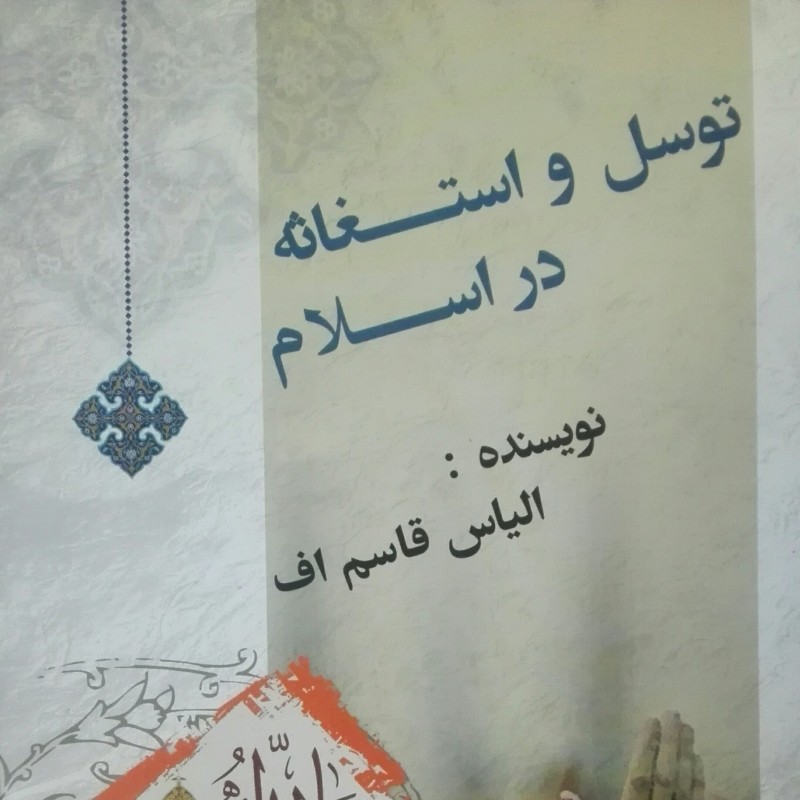 توسل و استغاثه
در اسلام
نویسنده :
الیاس قاسم اف